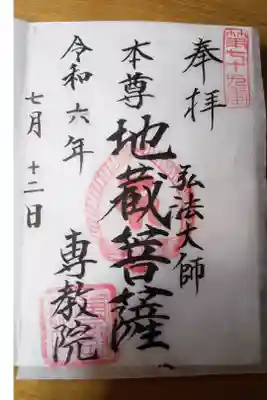 奉拝
弘法大師
本尊
地蔵菩薩
専教院
令和六年
七月十二日